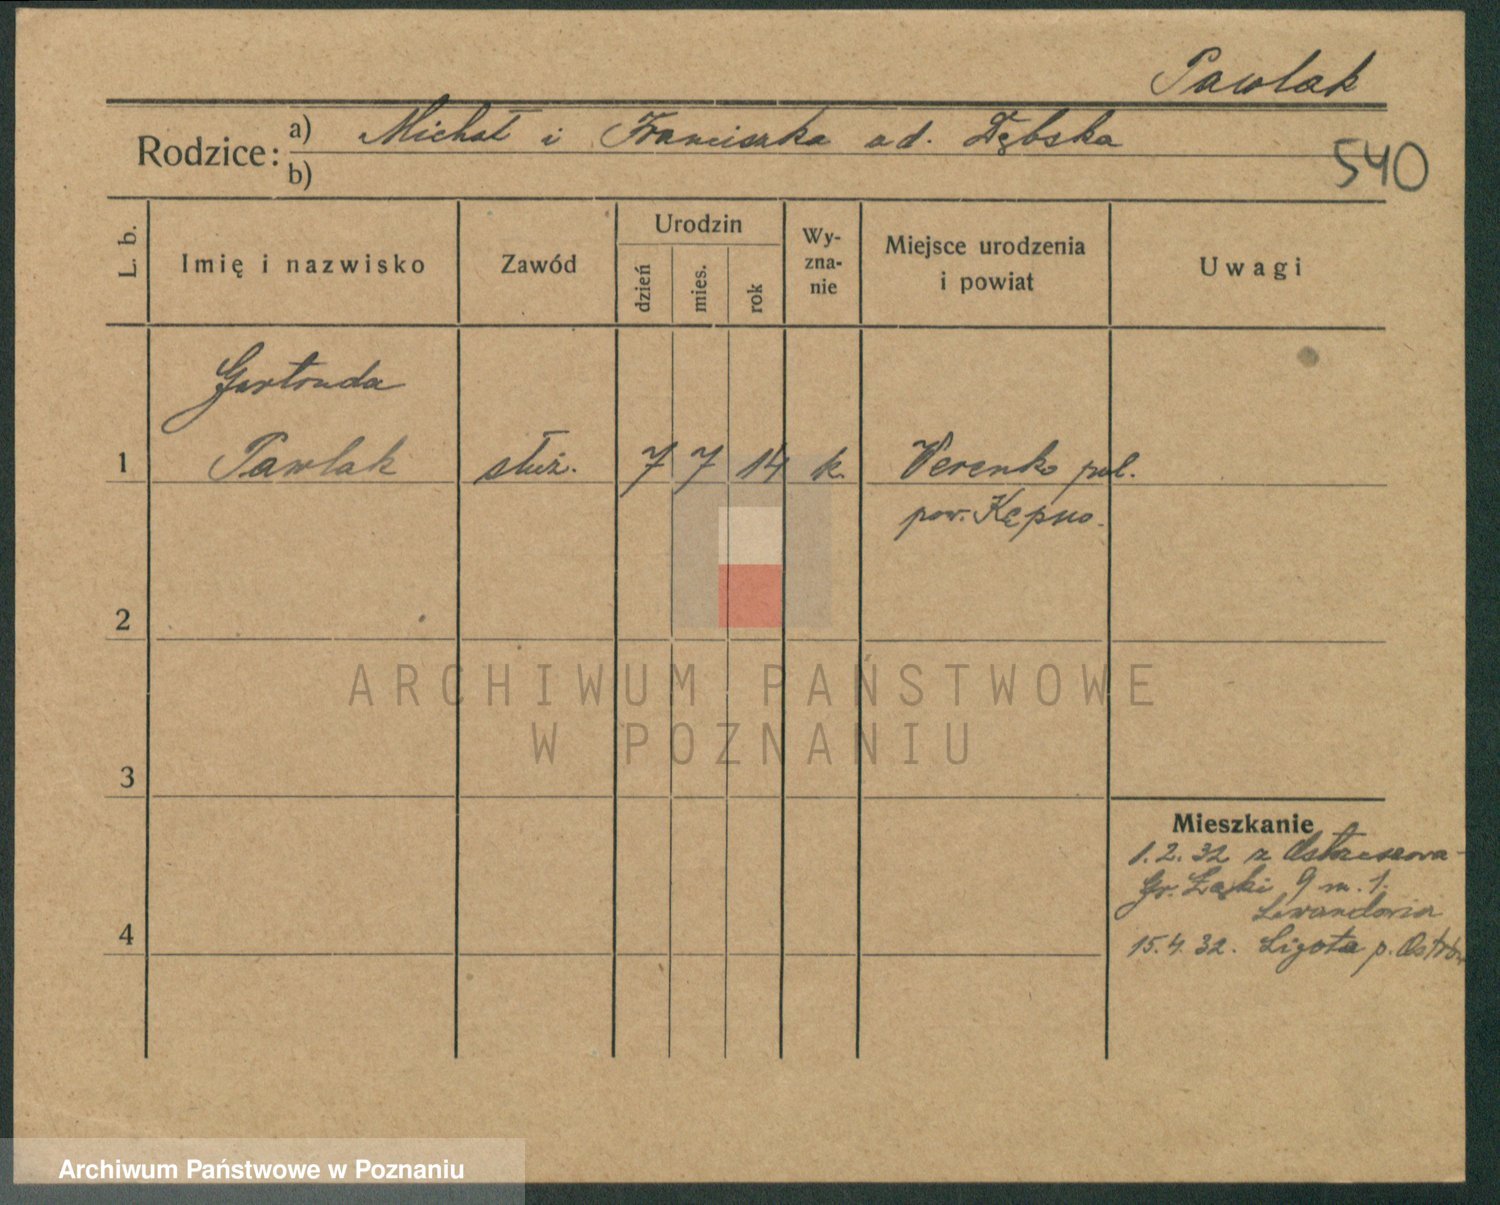 Pawlak
Rodzice: a) Michał i Franciszka od. Dębska
b)
540
L. b.
Imię i nazwisko
Zawód
Urodzin
dzień
mies.
rok
Wy-
zna-
nie
Miejsce urodzenia
i powiat
Uwagi
Gertruda
1 Pawlak służ. 7 7 14 k.
pow. Kępno.
2
ARCHIWUM PAŃSTWOWE
W POZNANIU
3
Mieszkanie
1.2.32 z Ostrzeszowa-
Gr. Łąki 9 m. 1.
4
15.4.32. Ligota p. Ostrów
Archiwum Państwowe w Poznaniu